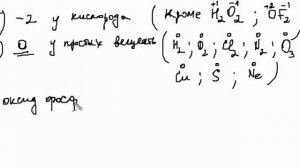 ) -2 у кислорода (Кроме H₂⁺¹O₂⁻¹ ; O⁺²F₂⁻¹
) 0 у простых веществ (H₂⁰ ; O₂⁰ ; Cl₂⁰ ; N₂⁰ ; O₃⁰
Cu⁰ ; S⁰ ; Ne⁰)
оксид фосф